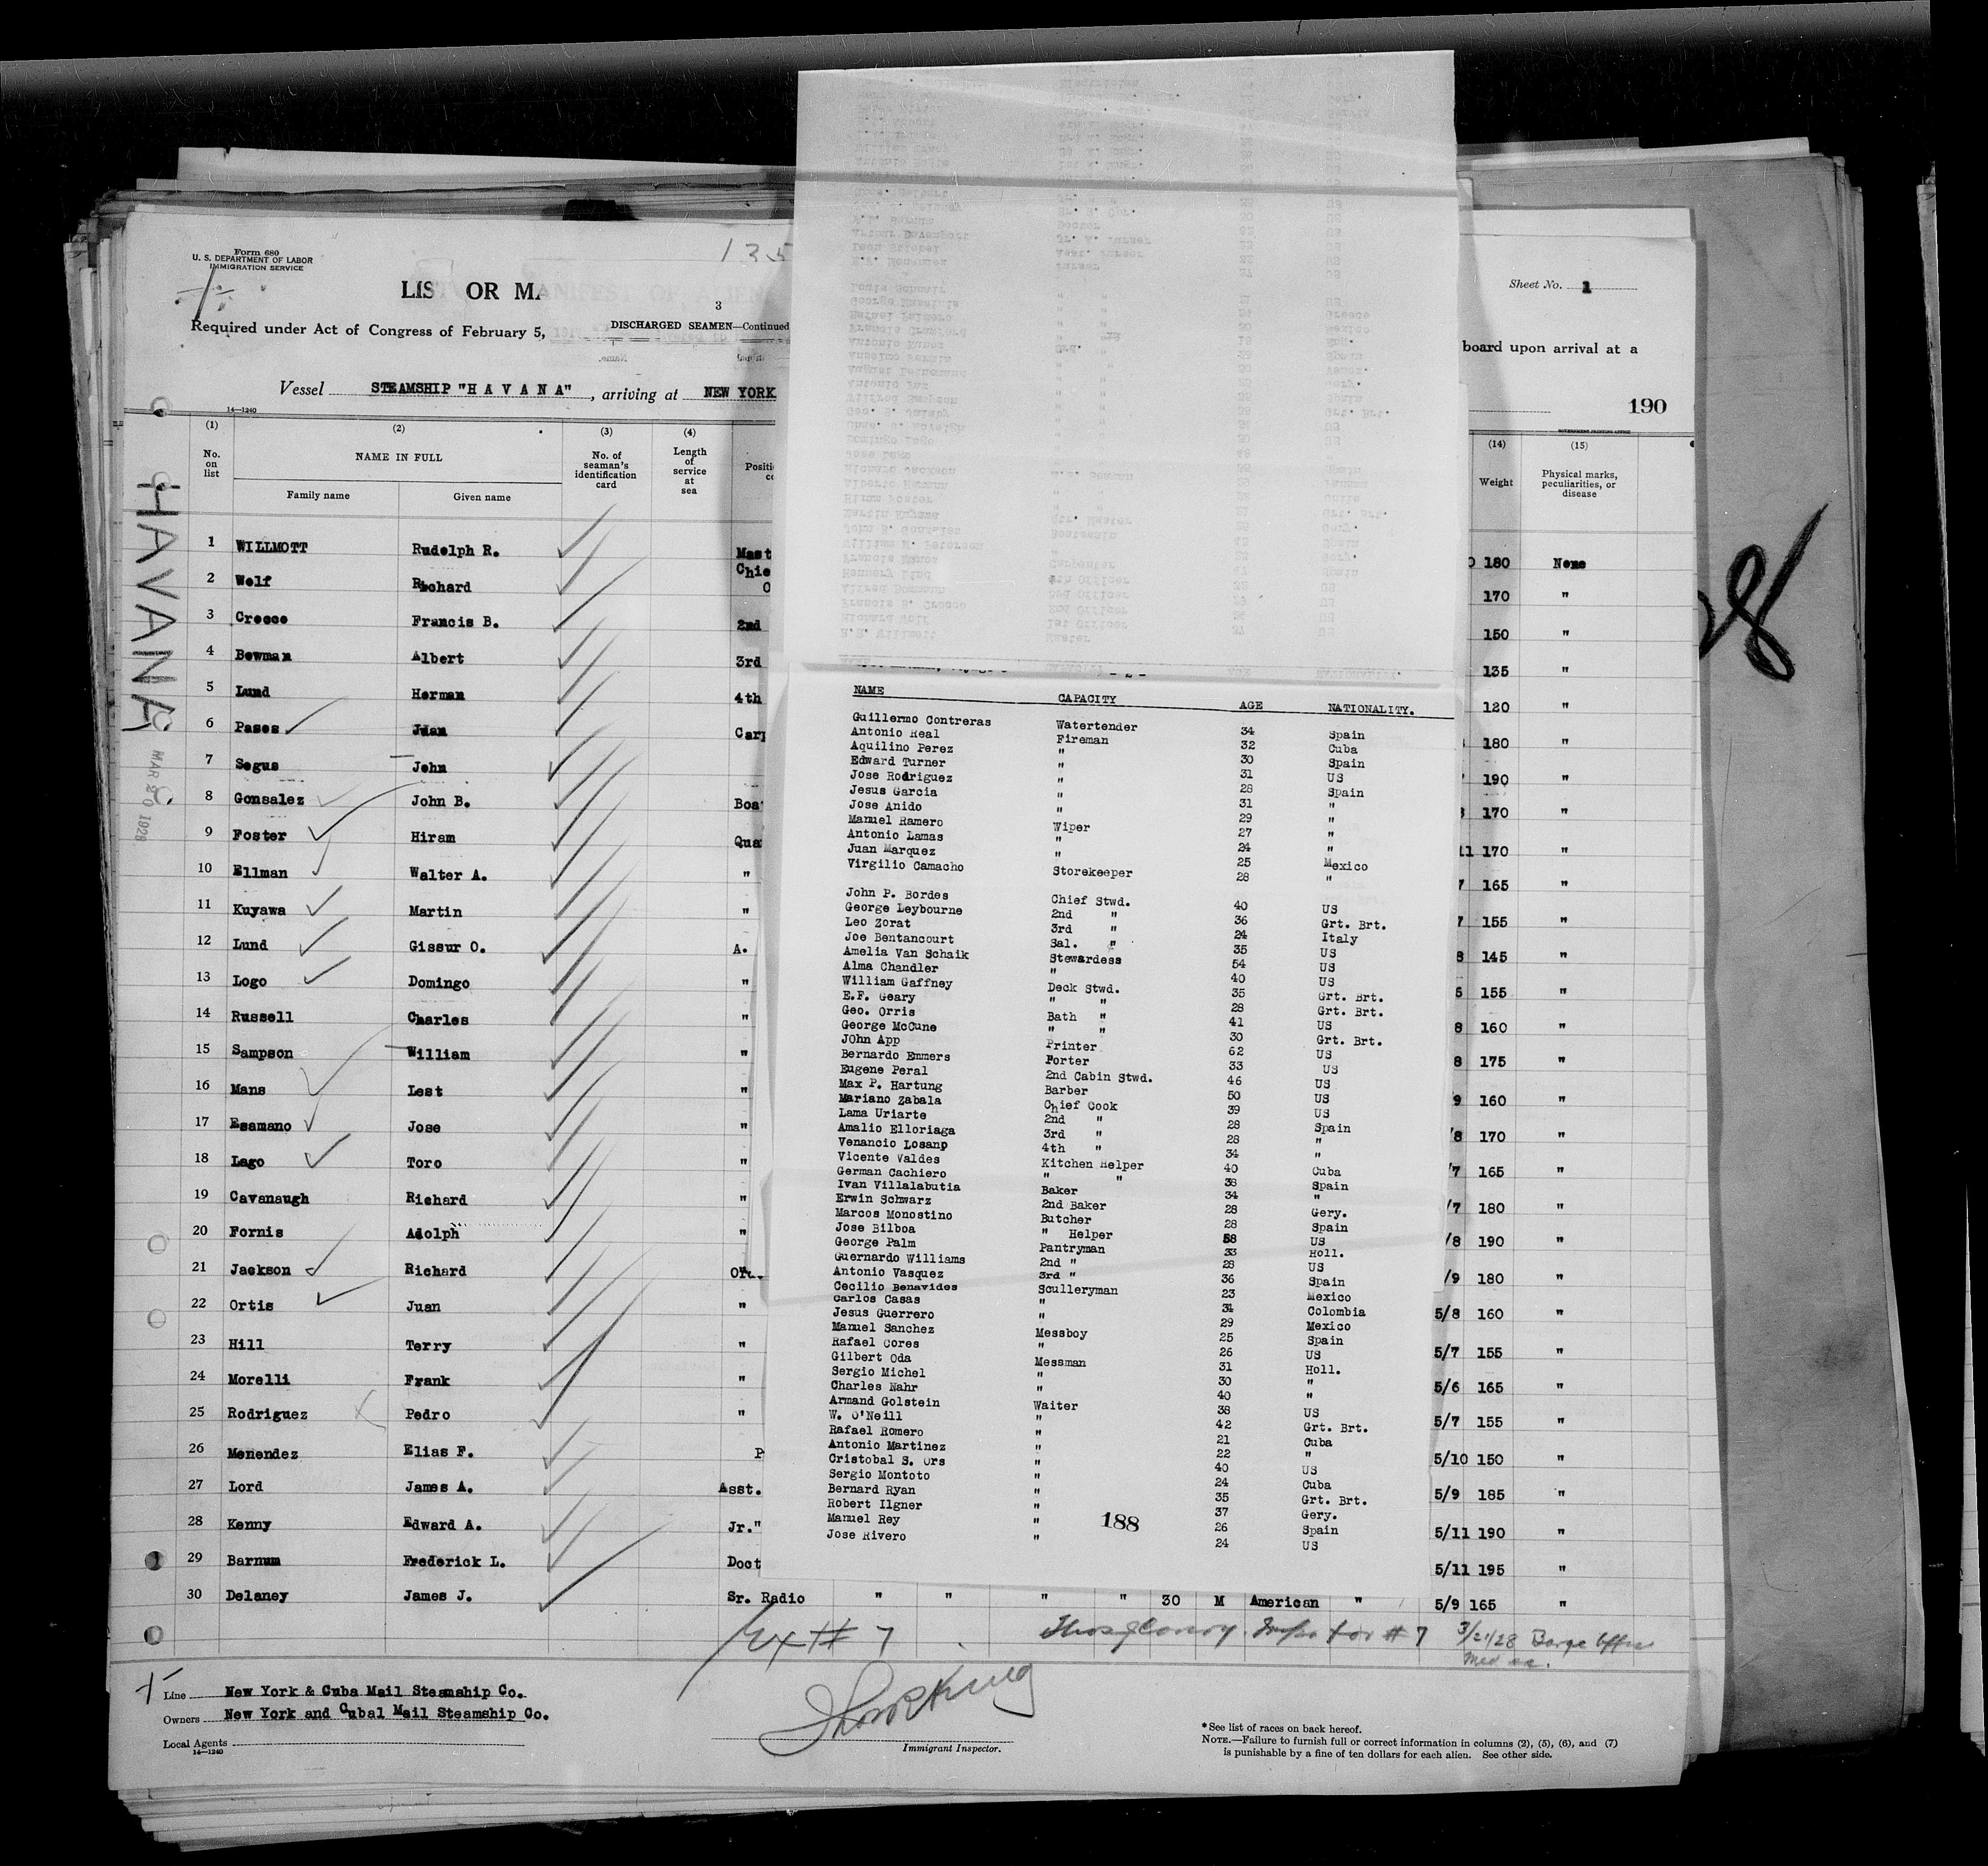 Form 680
U. S. DEPARTMENT OF LABOR
IMMIGRATION SERVICE
135
LIST OR MA
Sheet No. 1
3
Required under Act of Congress of February 5,
DISCHARGED SEAMEN—Continued
board upon arrival at a
Vessel STEAMSHIP "H A V A N A", arriving at NEW YORK
190
14—1240
GOVERNMENT PRINTING OFFICE
(1) (2) (3) (4) (14) (15)
No. on list NAME IN FULL No. of seaman's identification card Length of service at sea Positi Weight Physical marks, peculiarities, or disease
Family name Given name
HAVANA
MAR 20 1928
1 WILLMOTT Rudolph R. Mast 180 None
2 Wolf Richard Chie O 170 "
3 Crocco Francis B. 2nd 150 "
4 Bowman Albert 3rd 135 "
5 Lund Herman 4th 120 "
6 Pases Juan Carp 180 "
7 Segus John 190 "
8 Gonsalez John B. Boa 170 "
9 Foster Hiram Qua 11 170 "
10 Ellman Walter A. " 7 165 "
11 Kuyawa Martin " 7 155 "
12 Lund Gissur O. A. 8 145 "
13 Logo Domingo " 6 155 "
14 Russell Charles " 8 160 "
15 Sampson William " 8 175 "
16 Mans Lest " 9 160 "
17 Esamano Jose " /8 170 "
18 Lago Toro " /7 165 "
19 Cavanaugh Richard " /7 180 "
20 Fornis Adolph " /8 190 "
21 Jackson Richard Or /9 180 "
22 Ortis Juan " 5/8 160 "
23 Hill Terry " 5/7 155 "
24 Morelli Frank " 5/6 165 "
25 Rodriguez Pedro " 5/7 155 "
26 Menendez Elias F. P 5/10 150 "
27 Lord James A. Asst. 5/9 185 "
28 Kenny Edward A. Jr." 5/11 190 "
29 Barnum Frederick L. Doct 5/11 195 "
30 Delaney James J. Sr. Radio " " " " 30 M American " 5/9 165 "
NAME CAPACITY AGE NATIONALITY.
Guillermo Contreras Watertender 34 Spain
Antonio Real Fireman 32 Cuba
Aquilino Perez " 30 Spain
Edward Turner " 31 US
Jose Rodriguez " 28 Spain
Jesus Garcia " 31 "
Jose Anido " 29 "
Manuel Ramero Wiper 27 "
Antonio Lamas " 24 "
Juan Marquez " 25 Mexico
Virgilio Camacho Storekeeper 28 "
John P. Bordes Chief Stwd. 40 US
George Leybourne 2nd " 36 Grt. Brt.
Leo Zorat 3rd " 24 Italy
Joe Bentancourt Sal. " 35 US
Amelia Van Schaik Stewardess 54 US
Alma Chandler " 40 US
William Gaffney Deck Stwd. 35 Grt. Brt.
E.F. Geary " " 28 Grt. Brt.
Geo. Orris Bath " 41 US
George McCune " " 30 Grt. Brt.
JOhn App Printer 62 US
Bernardo Emmers Porter 33 US
Eugene Peral 2nd Cabin Stwd. 46 US
Max P. Hartung Barber 50 US
Mariano Zabala Chief Cook 39 US
Lama Uriarte 2nd " 28 Spain
Amalio Elloriaga 3rd " 28 "
Venancio Losanp 4th " 34 "
Vicente Valdes Kitchen Helper 40 Cuba
German Cachiero " " 38 Spain
Ivan Villalabutia Baker 34 "
Erwin Schwarz 2nd Baker 28 Gery.
Marcos Monostino Butcher 28 Spain
Jose Bilboa " Helper 58 US
George Palm Pantryman 33 Holl.
Guernardo Williams 2nd " 28 US
Antonio Vasquez 3rd " 36 Spain
Cecilio Benavides Sculleryman 23 Mexico
Carlos Casas " 34 Colombia
Jesus Guerrero " 29 Mexico
Manuel Sanchez Messboy 25 Spain
Rafael Cores " 26 US
Gilbert Oda Messman 31 Holl.
Sergio Michel " 30 "
Charles Nahr " 40 "
Armand Golstein Waiter 38 US
W. O'Neill " 42 Grt. Brt.
Rafael Romero " 21 Cuba
Antonio Martinez " 22 "
Cristobal S. Ors " 40 US
Sergio Montoto " 24 Cuba
Bernard Ryan " 35 Grt. Brt.
Robert Ilgner " 37 Gery.
Manuel Rey " 26 Spain
Jose Rivero " 24 US
188
28
Ex # 7 Inspector # 7 3/21/28 Barge Office
Line New York & Cuba Mail Steamship Co.
Owners New York and Cubal Mail Steamship Co.
Local Agents
14—1240
Immigrant Inspector.
*See list of races on back hereof.
NOTE.—Failure to furnish full or correct information in columns (2), (5), (6), and (7)
is punishable by a fine of ten dollars for each alien. See other side.